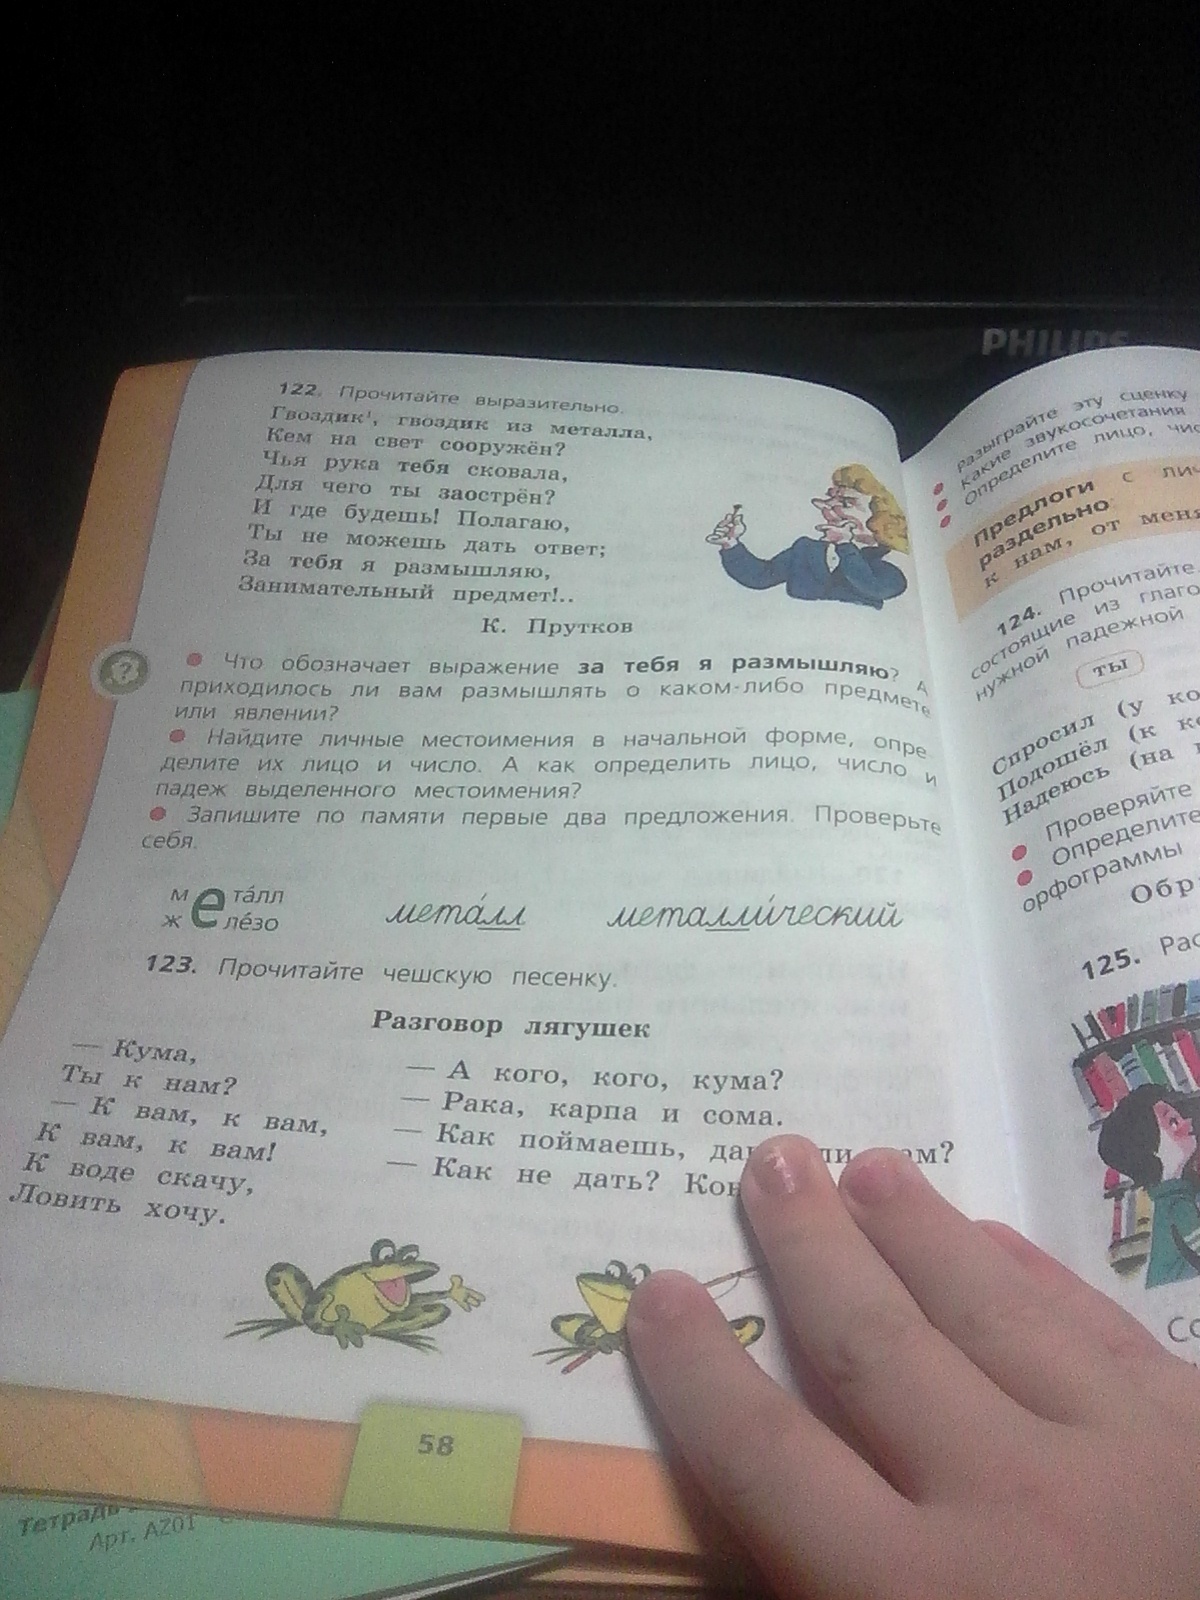 PHILIPS
122. Прочитайте выразительно.
Гвоздик¹, гвоздик из металла,
Кем на свет сооружён?
Чья рука тебя сковала,
Для чего ты заострён?
И где будешь! Полагаю,
Ты не можешь дать ответ;
За тебя я размышляю,
Занимательный предмет!..
К. Прутков
Что обозначает выражение за тебя я размышляю? А
приходилось ли вам размышлять о каком-либо предмете
или явлении?
Найдите личные местоимения в начальной форме, опре
делите их лицо и число. А как определить лицо, число и
падеж выделенного местоимения?
Запишите по памяти первые два предложения. Проверьте
себя.
м е талл
ж лезо
мета́лл металли́ческий
123. Прочитайте чешскую песенку.
Разговор лягушек
— Кума,
Ты к нам?
— К вам, к вам,
К вам, к вам!
К воде скачу,
Ловить хочу.
— А кого, кого, кума?
— Рака, карпа и сома.
— Как поймаешь, ли
— Как не дать?
58
разыграйте эту сценку
Какие звукосочетания
Определите лицо,
Предлоги с
раздельно
к нам, от меня
124. Прочитайте.
состоящие из
нужной падежной
ты
Спросил (у
Подошёл (к
Надеюсь (на
Проверяйте
Определите
орфограммы
125.
Тетрадь
Арт. AZ01